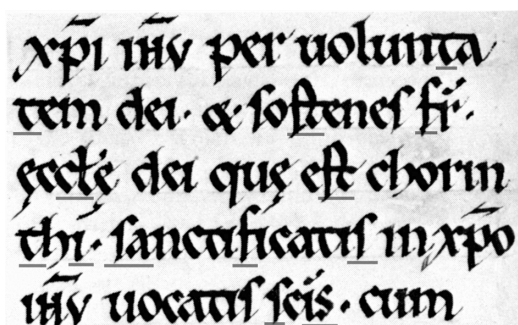 xp̄i ih̄v per uolunta
tem dei · & softenes fr̄ ·
ęcclę̄ dei quę est chorin
thi · sanctificatis in xp̄o
ih̄v uocatis sc̄is · cum